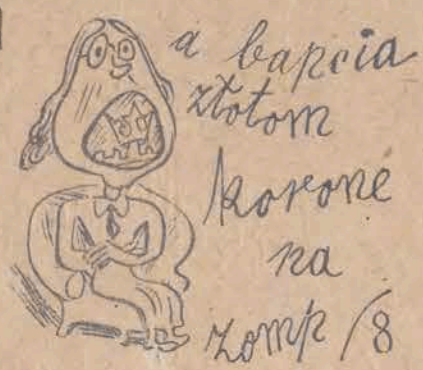 a bapcia
złotom
korone
na
zomp /8